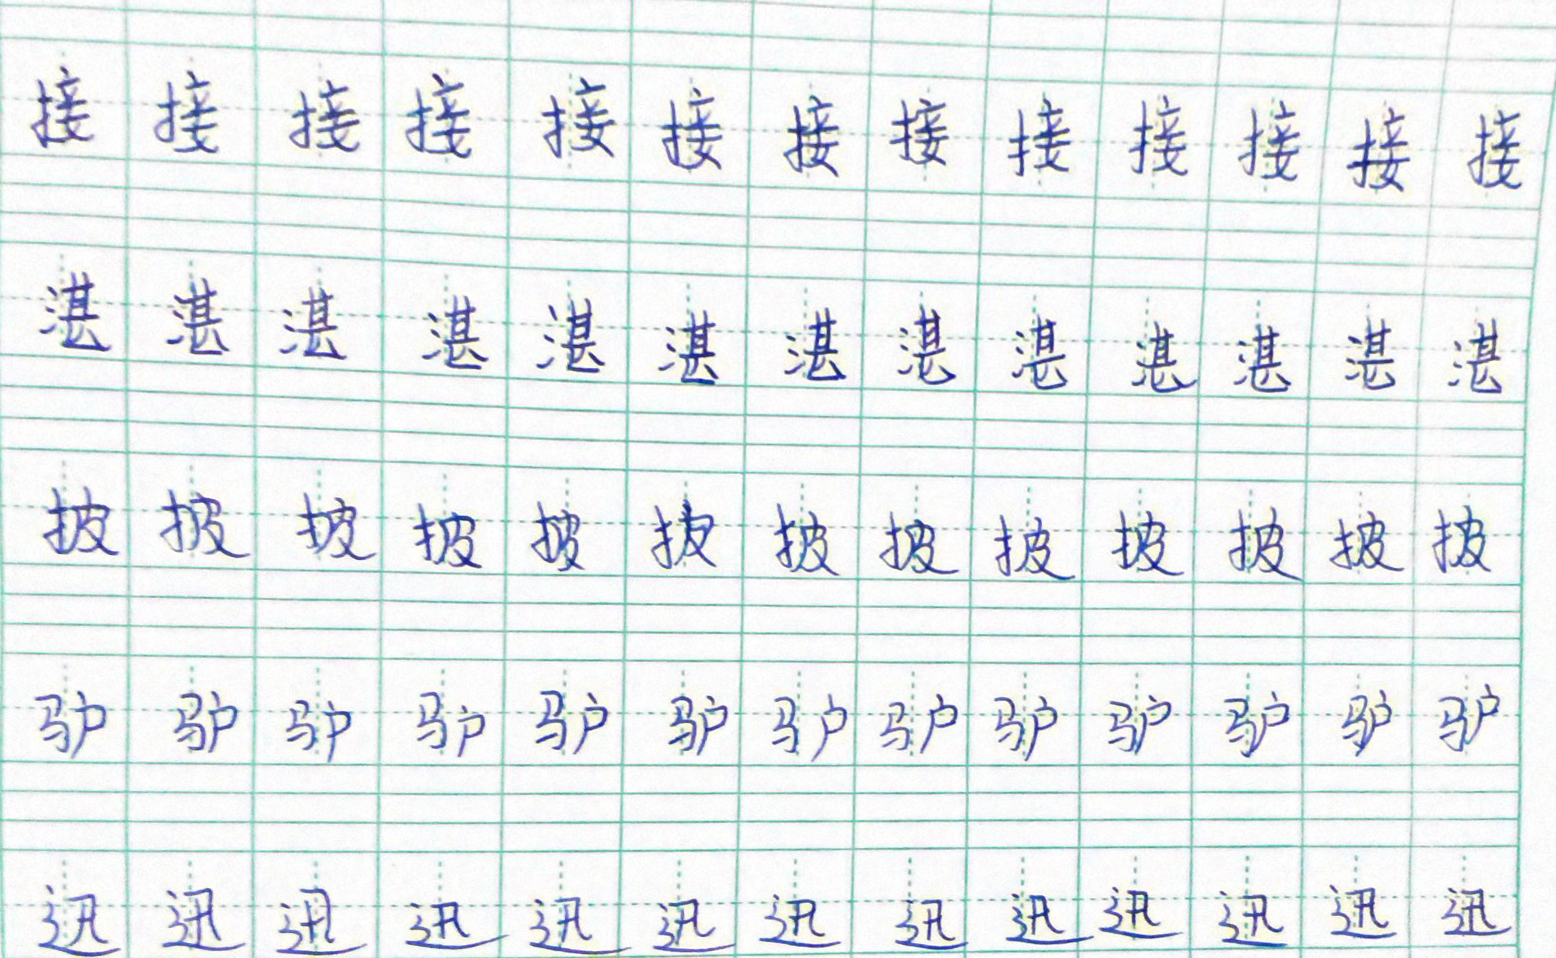 接接接接接接接接接接接接接
湛湛湛湛湛湛湛湛湛湛湛湛湛
披披披披披披披披披披披披披
驴驴驴驴驴驴驴驴驴驴驴驴驴
迅迅迅迅迅迅迅迅迅迅迅迅迅